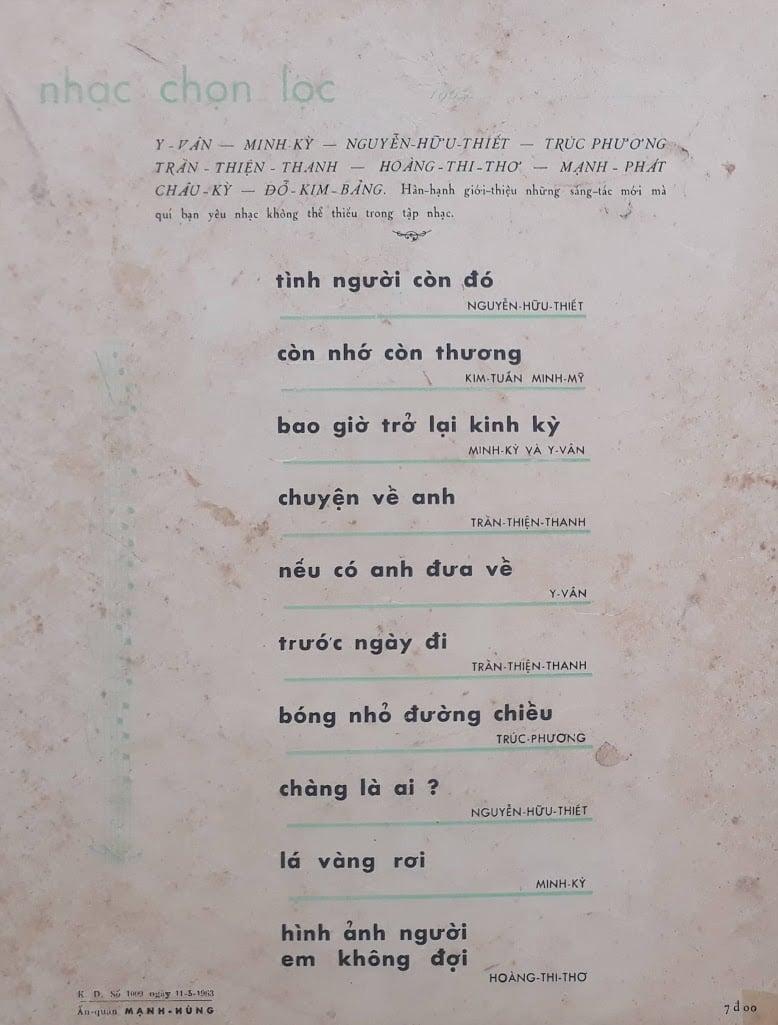 nhạc chọn lọc
Y-VÂN — MINH-KỲ — NGUYỄN-HỮU-THIẾT — TRÚC PHƯƠNG
TRẦN - THIỆN - THANH — HOÀNG - THI - THƠ — MẠNH - PHÁT
CHÂU - KỲ — ĐỖ - KIM - BẢNG. Hân-hạnh giới-thiệu những sáng-tác mới mà
quí bạn yêu nhạc không thể thiếu trong tập nhạc.
tình người còn đó
NGUYỄN-HỮU-THIẾT
còn nhớ còn thương
KIM-TUẤN MINH-MỸ
bao giờ trở lại kinh kỳ
MINH-KỲ VÀ Y-VÂN
chuyện về anh
TRẦN-THIỆN-THANH
nếu có anh đưa về
Y-VÂN
trước ngày đi
TRẦN-THIỆN-THANH
bóng nhỏ đường chiều
TRÚC-PHƯƠNG
chàng là ai ?
NGUYỄN-HỮU-THIẾT
lá vàng rơi
MINH-KỲ
hình ảnh người
em không đợi
HOÀNG-THI-THƠ
K. D. Số 1009 ngày 11-5-1963
Ấn-quán MẠNH-HÙNG
7đ00